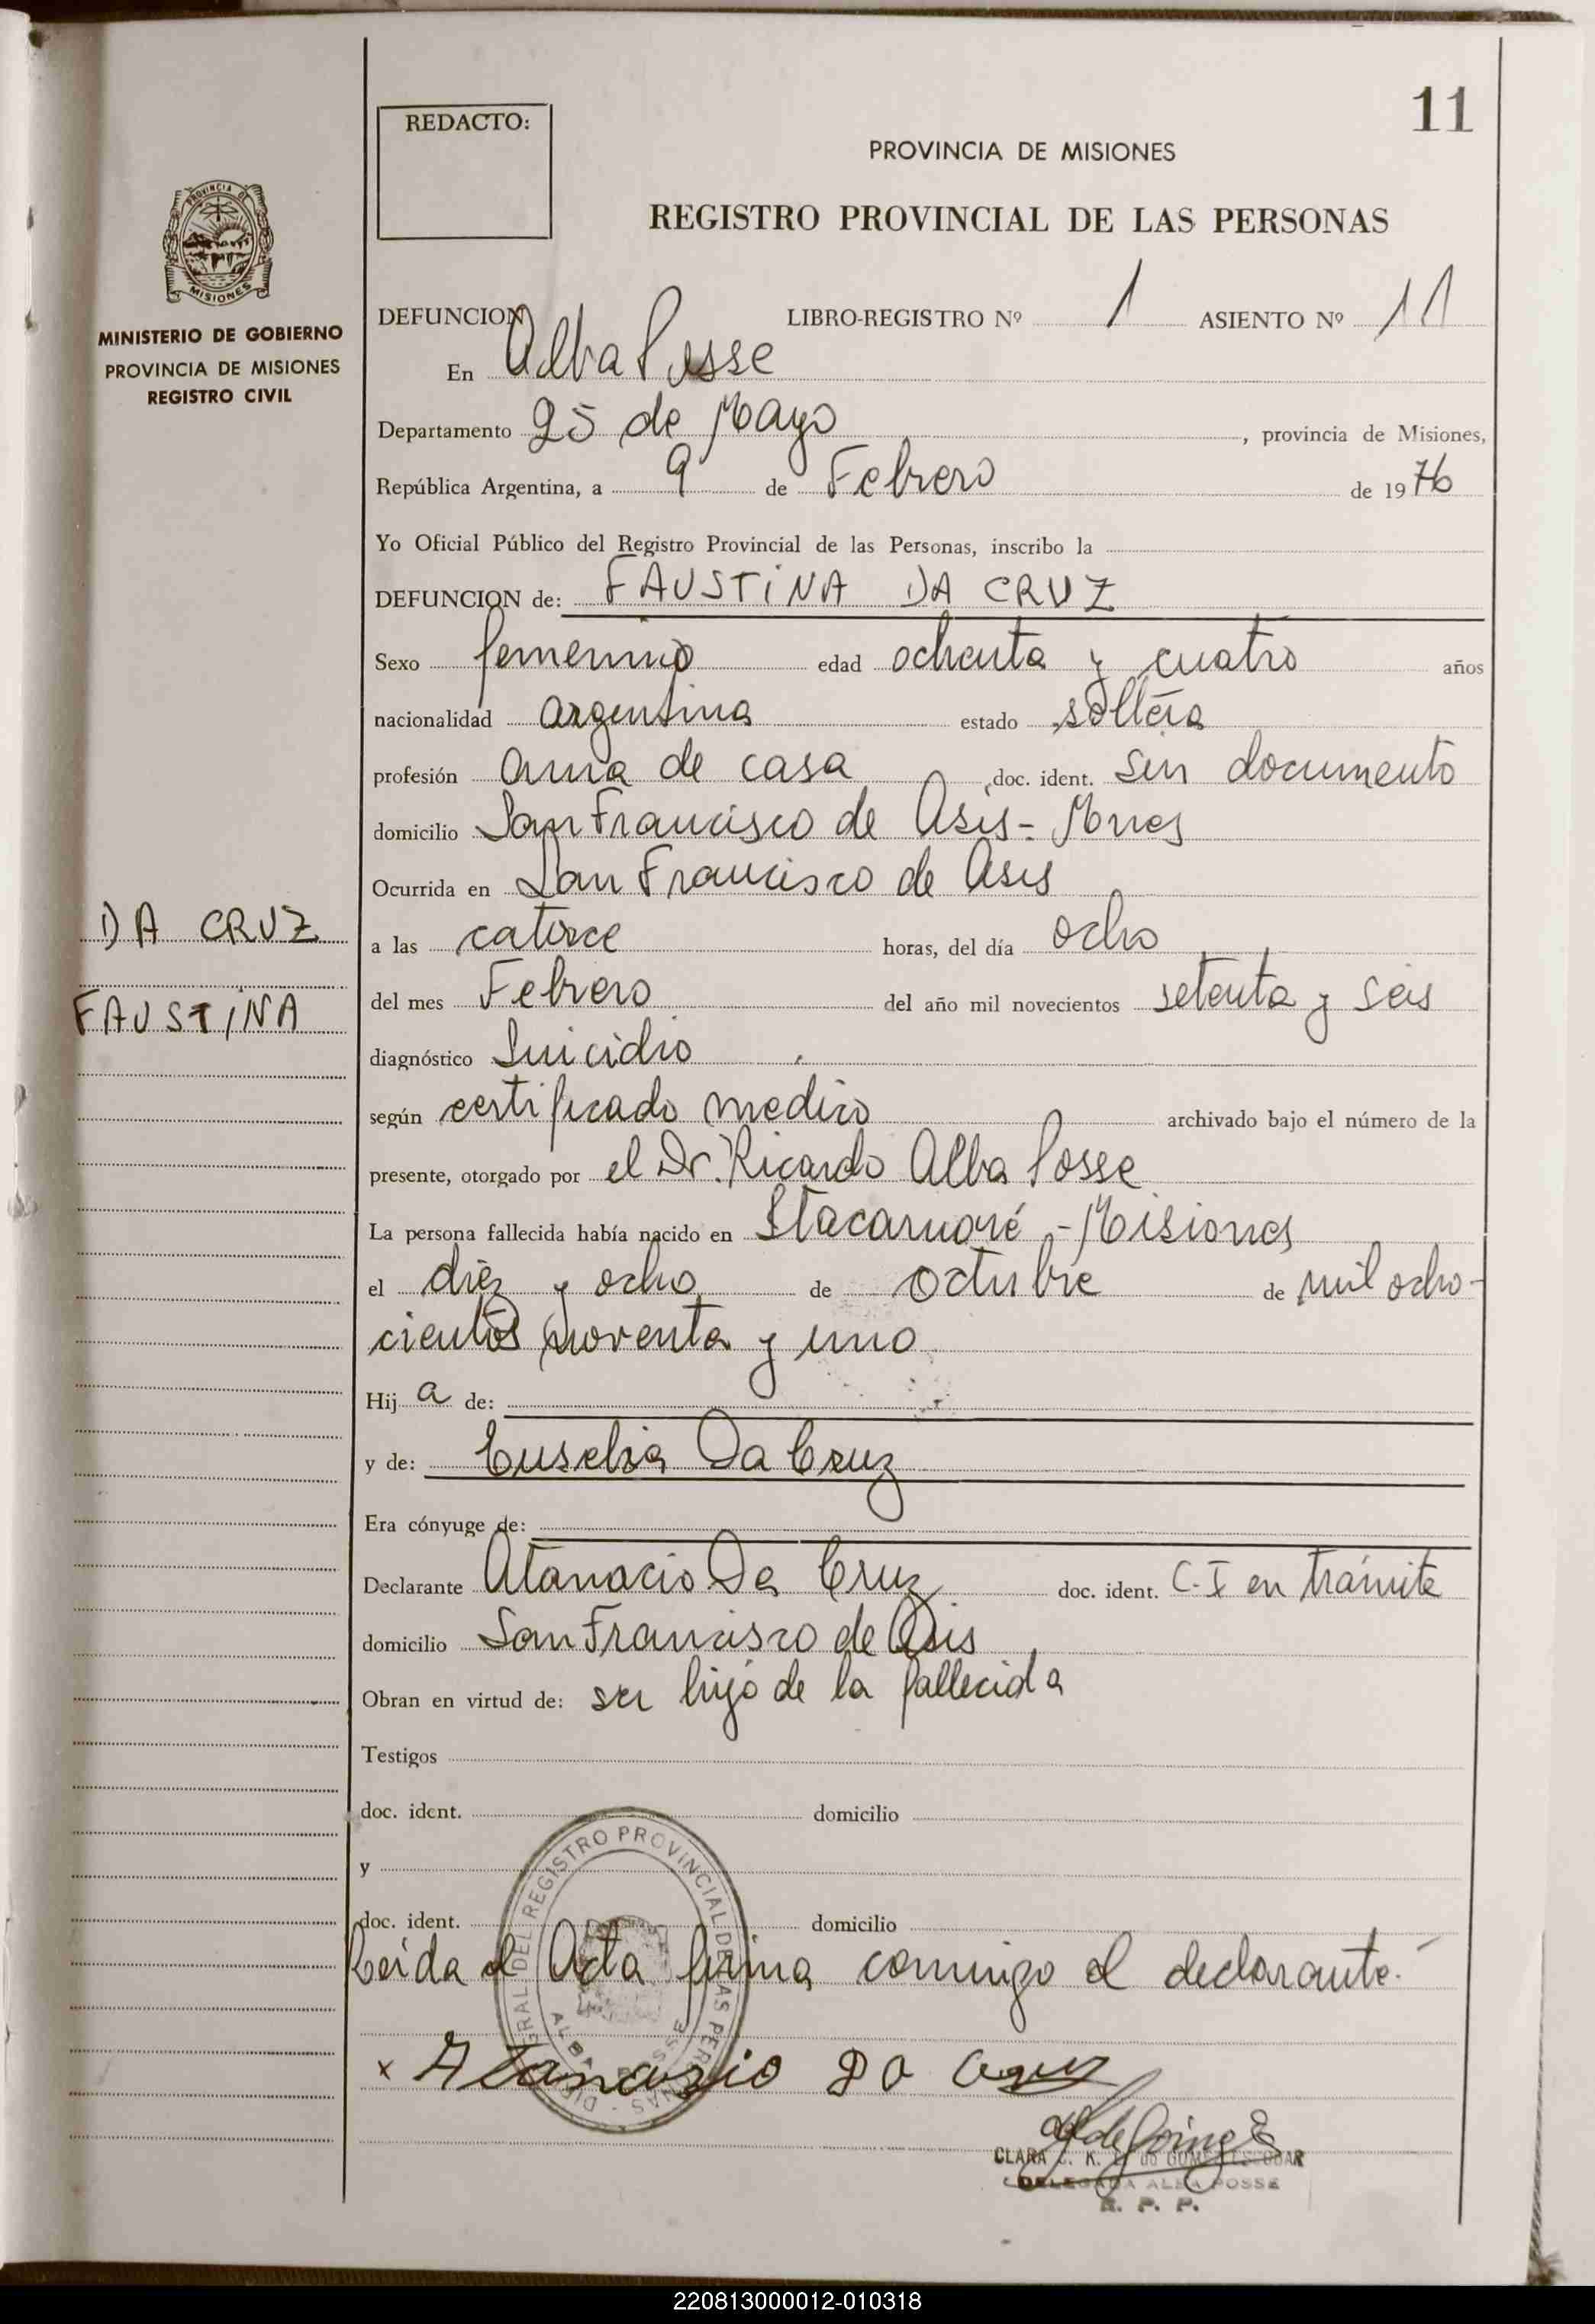 11
REDACTO:
PROVINCIA DE MISIONES
REGISTRO PROVINCIAL DE LAS PERSONAS
PROVINCIA DE
MISIONES
MINISTERIO DE GOBIERNO
PROVINCIA DE MISIONES
REGISTRO CIVIL
DEFUNCION LIBRO-REGISTRO Nº 1 ASIENTO Nº 11
En Alba Posse
Departamento 25 de Mayo, provincia de Misiones,
República Argentina, a 9 de Febrero de 1976
Yo Oficial Público del Registro Provincial de las Personas, inscribo la
DEFUNCION de: FAUSTINA DA CRUZ
Sexo femenino edad ochenta y cuatro años
nacionalidad argentina estado soltera
profesión ama de casa doc. ident. sin documento
domicilio San Francisco de Asis - Mnes
Ocurrida en San Francisco de Asis
DA CRUZ
FAUSTINA
a las catorce horas, del día ocho
del mes Febrero del año mil novecientos setenta y seis
diagnóstico Suicidio
según certificado medico archivado bajo el número de la
presente, otorgado por el Dr. Ricardo Alba Posse
La persona fallecida había nacido en Itacaruaré - Misiones
el diez y ocho de octubre de mil ocho-
cientos noventa y uno
Hija de:
y de: Euselia Da Cruz
Era cónyuge de:
Declarante Atanacio Da Cruz doc. ident. C-I en trámite
domicilio San Francisco de Asis
Obran en virtud de: ser hijo de la fallecida
Testigos
doc. ident. domicilio
y
doc. ident. domicilio
Leída el Acta firma conmigo el declarante.
x Atanazio Da Cruz
REGISTRO PROVINCIAL DE LAS PERSONAS
ALBA POSSE
CLARA
DELEGADA ALBA POSSE
R. P. P.
220813000012-010318